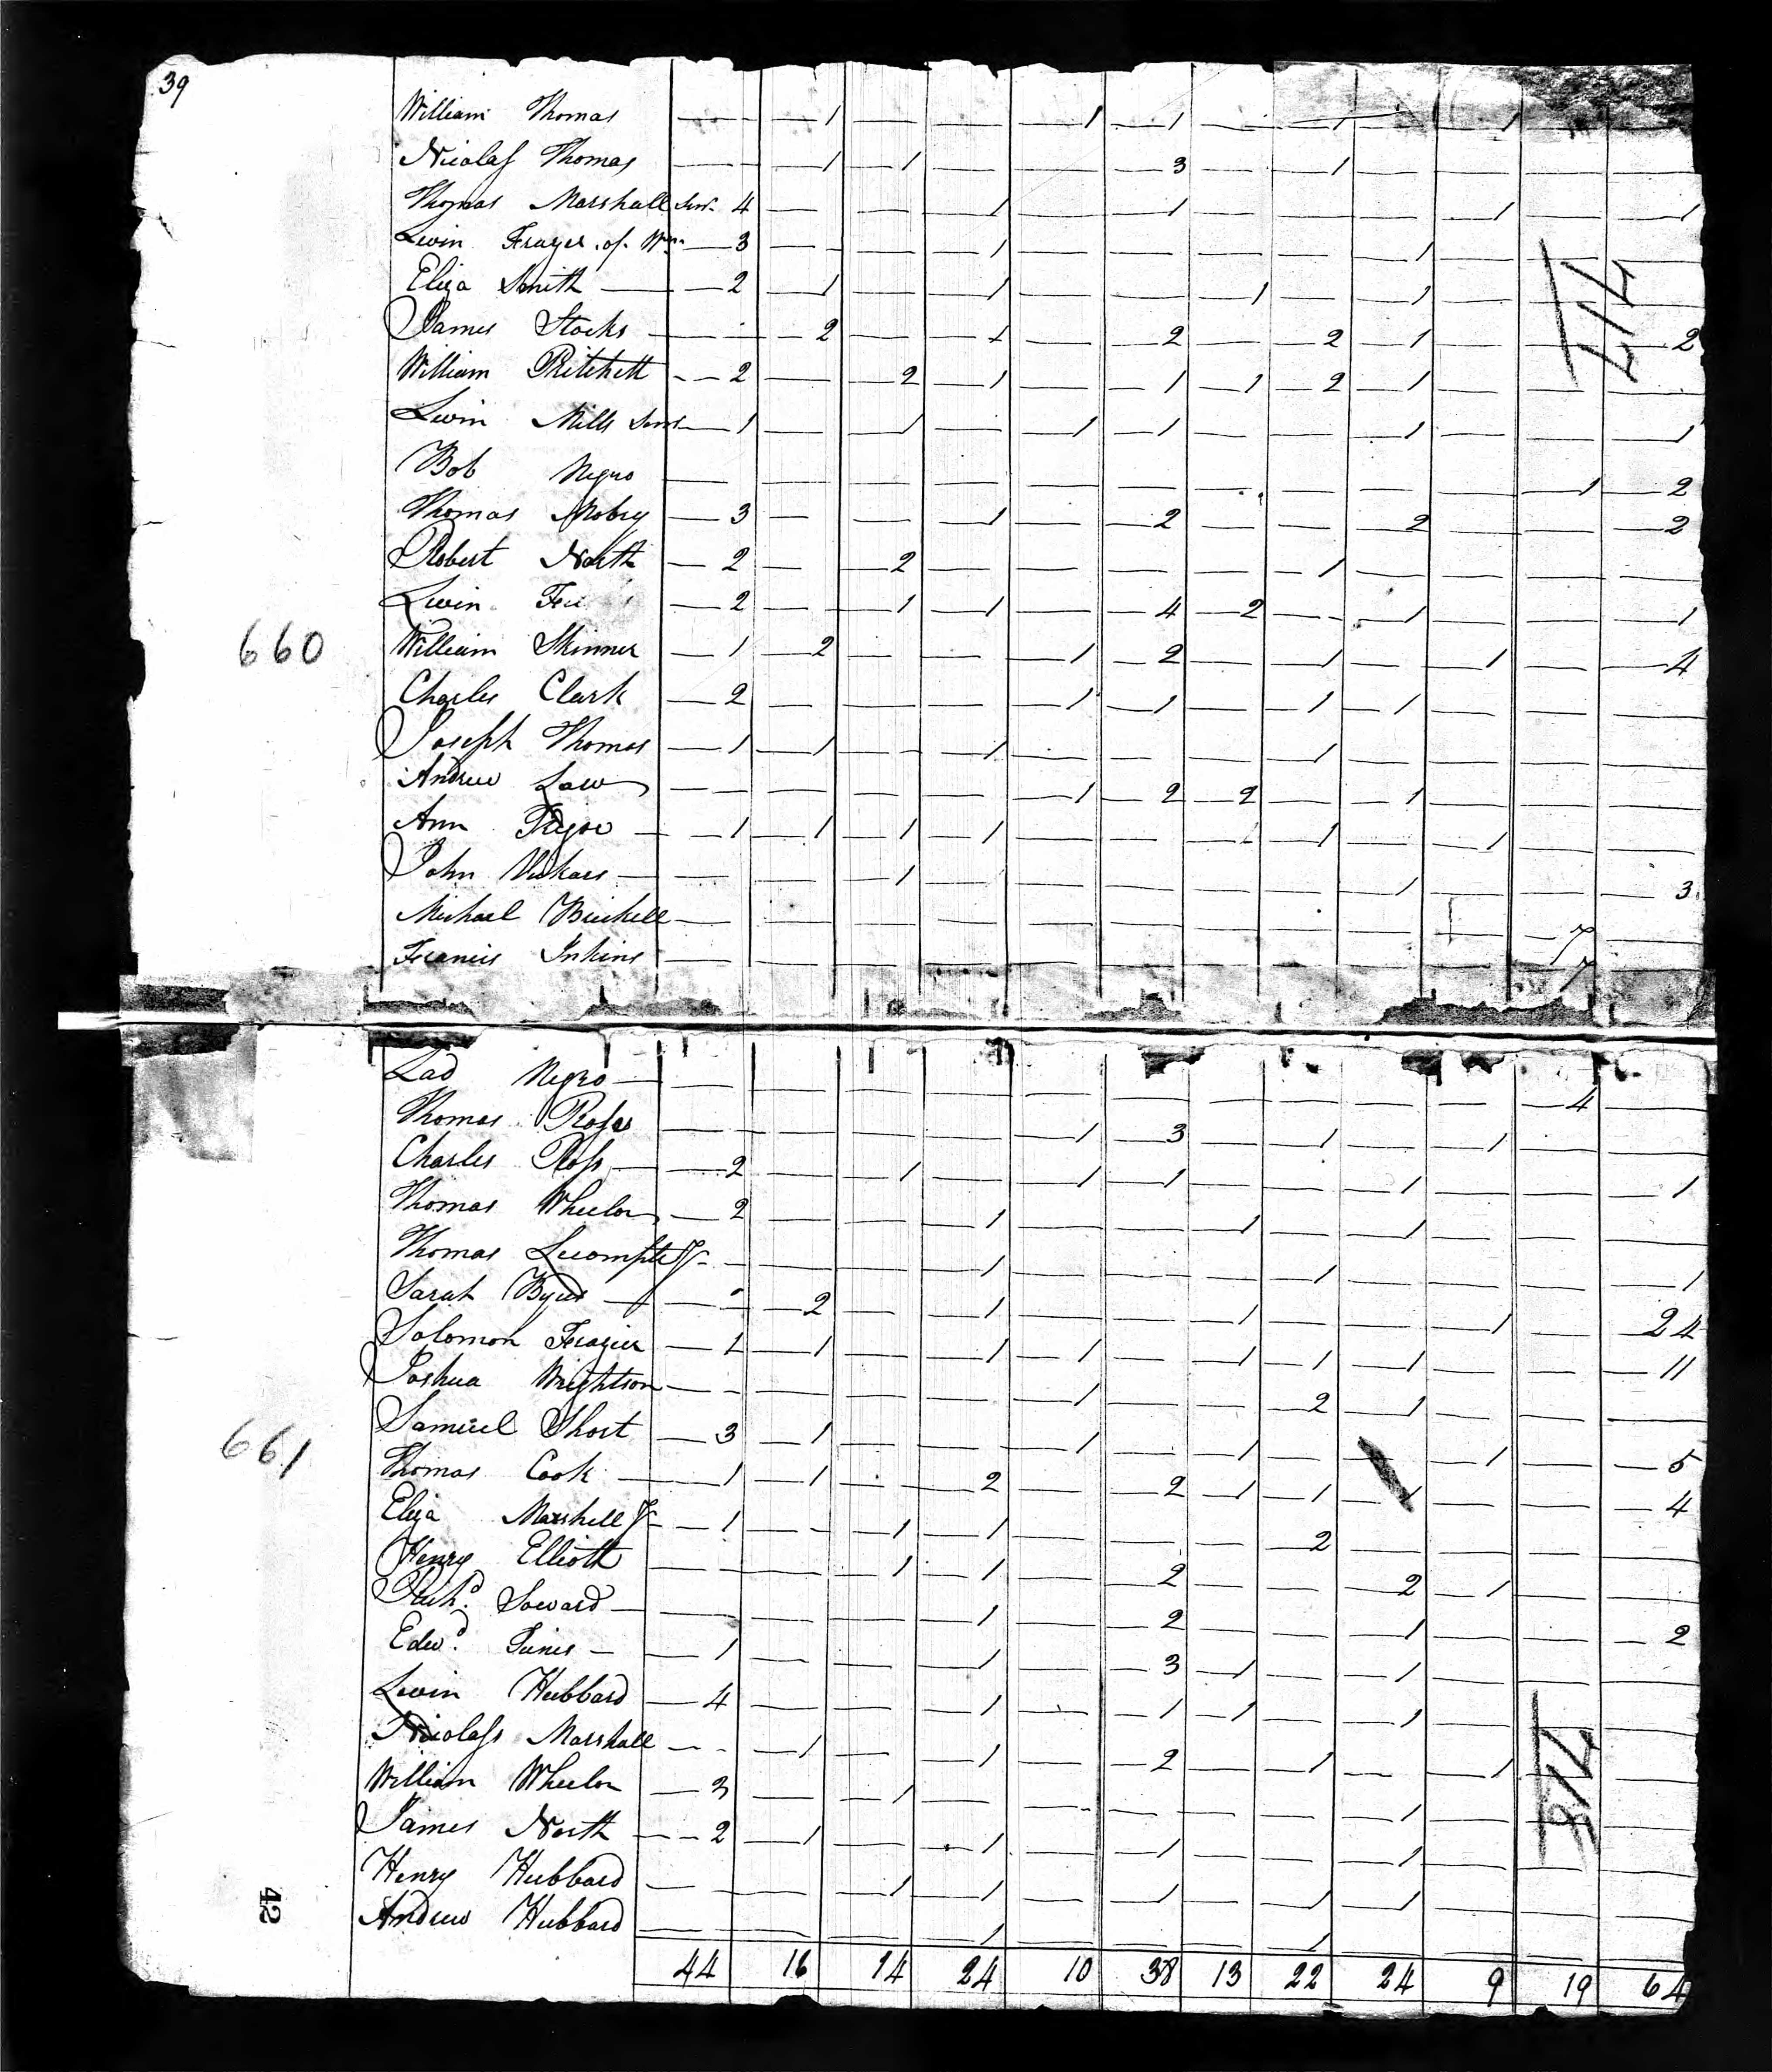 39
William Thomas — — 1 — — 1 1 — 1 — 1 — —
Nicolass Thomas — — 1 1 — — 3 — 1 — — — —
Thomas Marshall Senr. 4 — — 1 — 1 — — — 1 — 1
Levin Frazer of Wm. — 3 — — 1 — — — — 1 — — —
Eliza Smith — — 2 1 — 1 — — 1 — 1 — — —
James Stocks — — 2 — 1 — 2 — 2 1 — — 2
717
William Pritchett — 2 — 2 1 — 1 1 2 1 — — —
Levin Mills Senr — 1 — 1 — 1 1 — — 1 — — 1
Bob Negro — — — — — — — — — — 1 2
Thomas Mobry — 3 — — 1 — 2 — — 2 — — 2
Robert North — 2 — 2 — — — — 1 — — — —
Levin — 2 — 1 1 — 4 2 — 1 — — 1
660
William Skinner — 1 2 — — 1 2 — 1 — 1 — 4
Charles Clark — 2 — — — 1 1 — 1 1 — — —
Joseph Thomas — 1 1 — 1 — — — 1 — — — —
Andrew Law — — — — 1 2 2 — 1 — — —
Ann — 1 1 1 1 — — 1 1 — 1 — —
John Vickars — — — 1 — — — — — 1 — — 3
Michael — — — — — — — — — — 7 —
Francis Inkins — — — — — — — — — — 7 —
Lad Negro — — — — — — — — — — 4 —
Thomas Ross — — — — 1 3 — 1 — 1 — —
Charles Ross — 2 — 1 — 1 1 — — 1 — — 1
Thomas Wheelor — 2 — — 1 — — 1 — 1 — — —
Thomas Lecompte Jr — — — 1 — — — 1 — — — 1
Sarah Byus — — 2 — 1 — — 1 — — 1 — 24
Solomon Frazier — 1 1 — 1 1 — 1 1 1 — — 11
Joshua Wrightson — — — — 1 — — 2 1 — — —
661
Samuel Short — 3 1 — — 1 — 1 — — 1 — 5
Thomas Cook — 1 1 — 2 — 2 1 1 1 — — 4
Eliza Marshall Jr — 1 — 1 1 — — — 2 — — — —
Henry Elliott — — 1 1 — 2 — — 2 1 — —
Richd. Soward — — — 1 — 2 — — 1 — — 2
Edwd. — 1 — — 1 — 3 1 — 1 — — —
Levin Hubbard — 4 — — 1 — 1 1 — 1 — — —
Nicolass Marshall — — 1 — 1 — 2 — 1 — 1 — —
718
William Wheelor — 3 — 1 — — — — — 1 — — —
James North — 2 1 — 1 — 1 — — 1 — — —
Henry Hubbard — — — 1 1 — 1 — 1 1 — — —
42
Andrew Hubbard — — — 1 — — — 1 — — — —
44 16 14 24 10 38 13 22 24 9 19 64